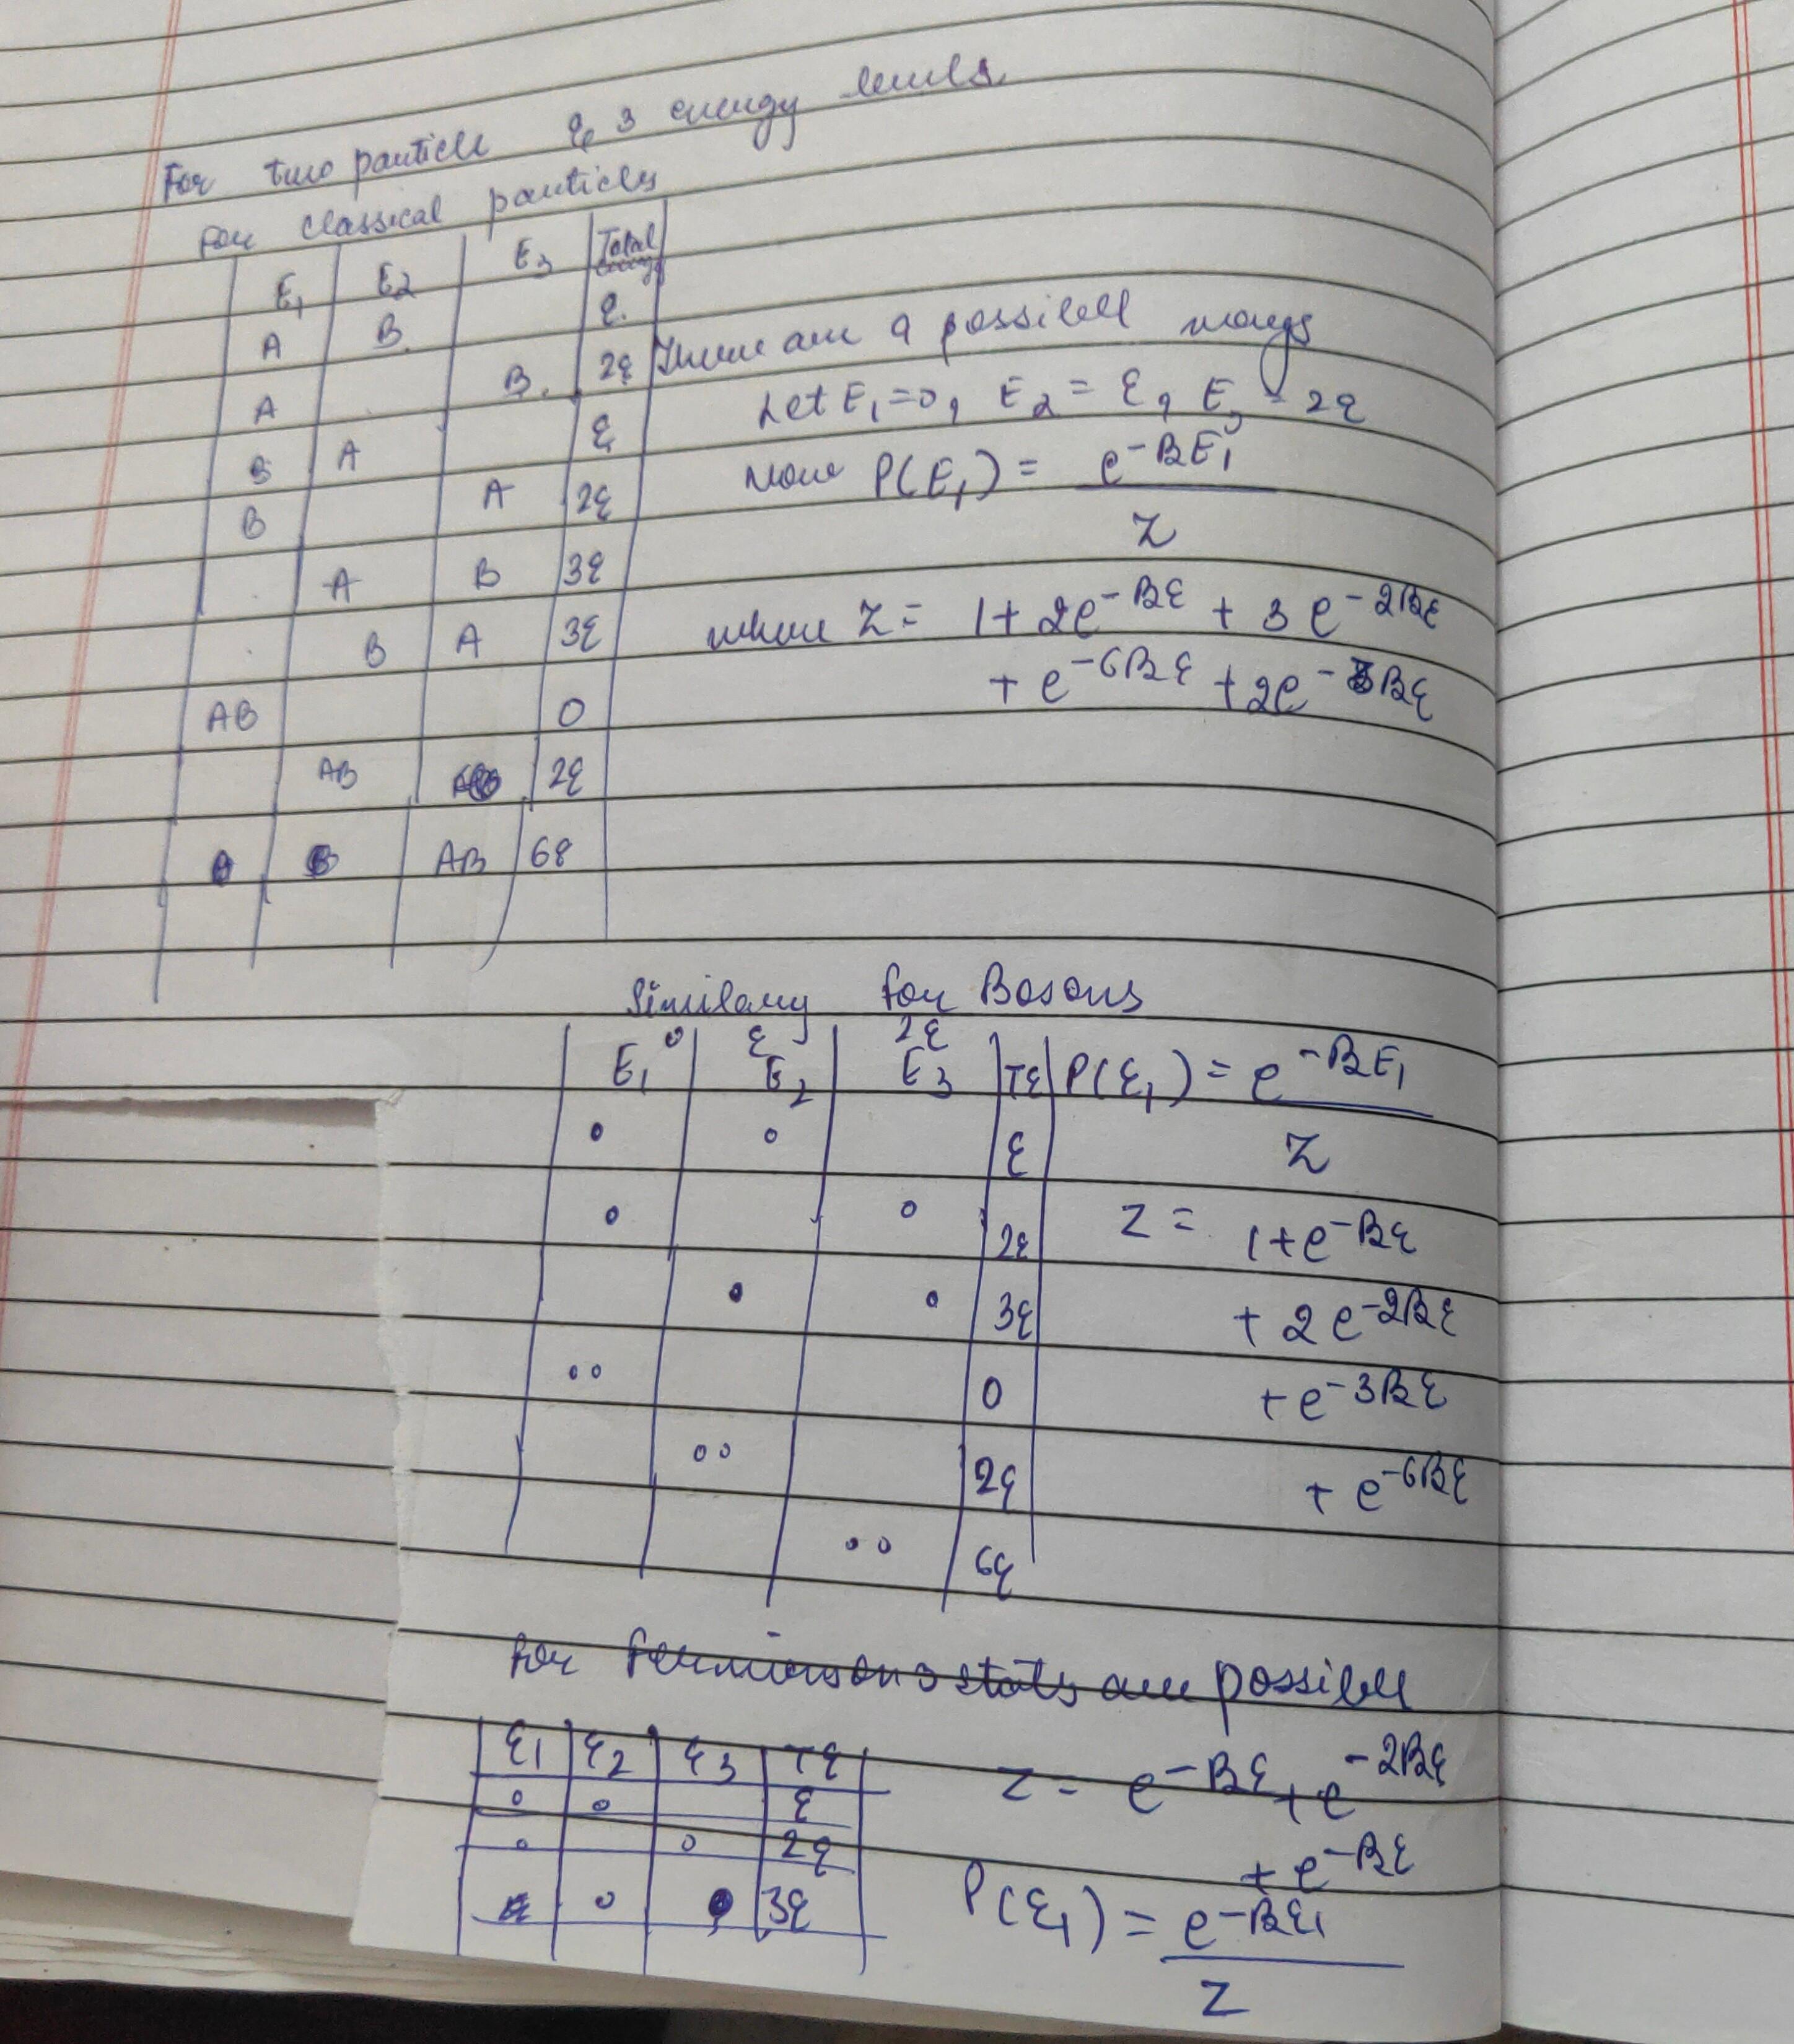 For two particle & 3 energy levels.
For classical particles
E₁ E₂ E₃ Total energy
A B ε.
A B. 2ε
B A ε
B A 2ε
A B 3ε
B A 3ε
AB 0
AB 2ε
AB 6ε
There are 9 possibell ways
Let E₁=0, E₂ = ε, E₃ = 2ε
Now P(E₁) = e^-βE₁ / Z
where Z = 1 + 2e^-βε + 3e^-2βε
+ e^-6βε + 2e^-3βε
Similary for Bosons
0 ε 2ε
E₁ E₂ E₃ Tε
o o ε
o o 2ε
o o 3ε
oo 0
oo 2ε
oo 6ε
P(ε₁) = e^-βE₁ / Z
Z = 1 + e^-βε
+ 2e^-2βε
+ e^-3βε
+ e^-6βε
for fermions 3 states are possibell
ε₁ ε₂ ε₃ Tε
o o ε
o o 2ε
o o 3ε
Z = e^-βε + e^-2βε
+ e^-βε
P(ε₁) = e^-βε₁ / Z